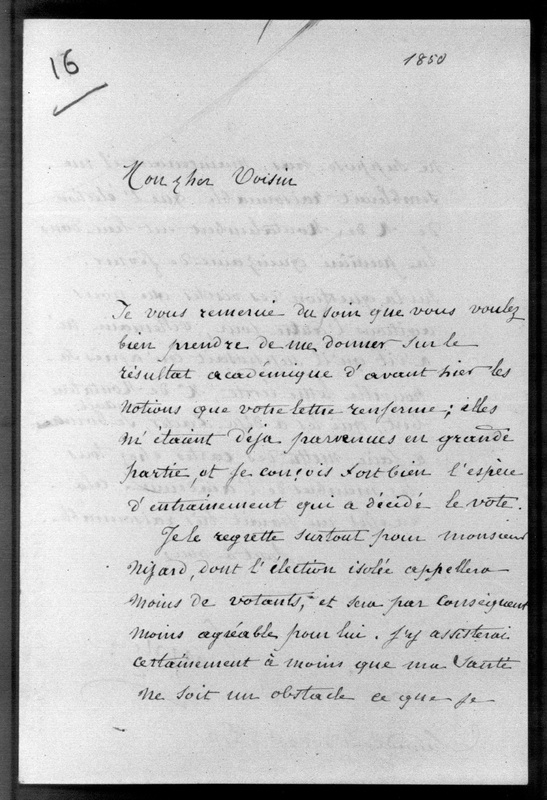 16
1850
Mon cher Voisin
Je vous remercie du soin que vous voulez
bien prendre de me donner sur le
résultat académique d'avant hier les
notions que votre lettre renferme; elles
m'étaient déja parvenues en grande
partie, et je conçois fort bien l'espèce
d'entrainement qui a décidé le vote.
Je le regrette surtout pour monsieur
Nizard, dont l'élection isolée appellera
moins de votants, et sera par conséquent
moins agréable pour lui. J'y assisterai
certainement à moins que ma santé
ne soit un obstacle ce que je